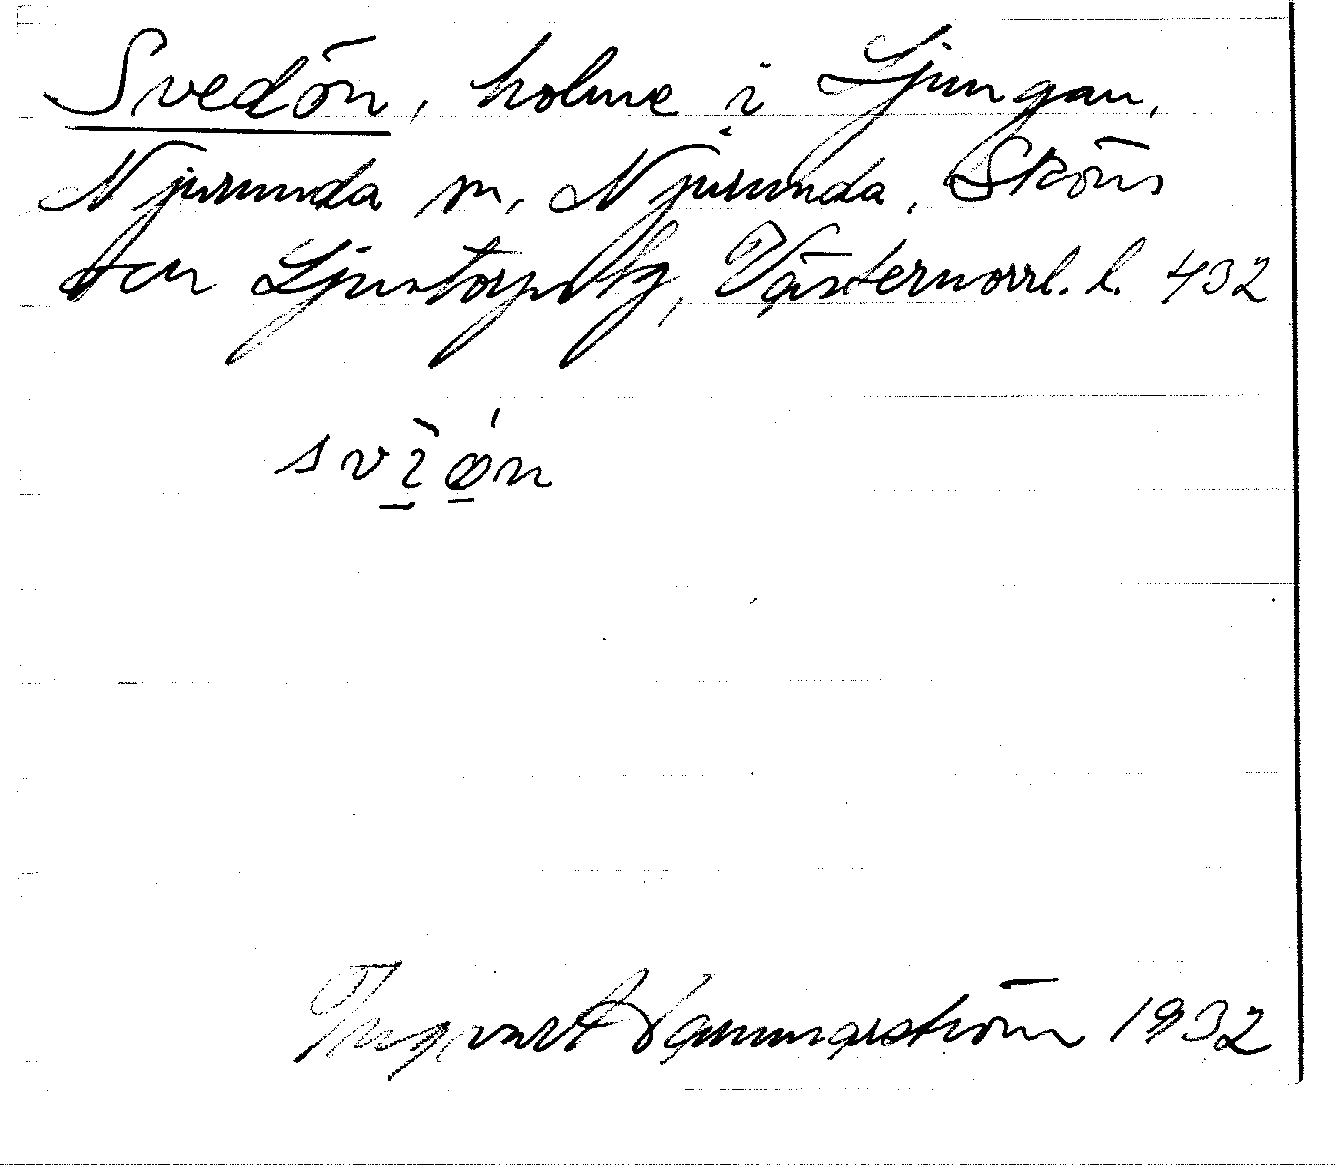 Svedön, holme i Ljungan,
Njurunda sn, Njurunda, Sköns
och Ljustorps tg, Västernorrl. l. 432
Ingvar Hammarström 1932